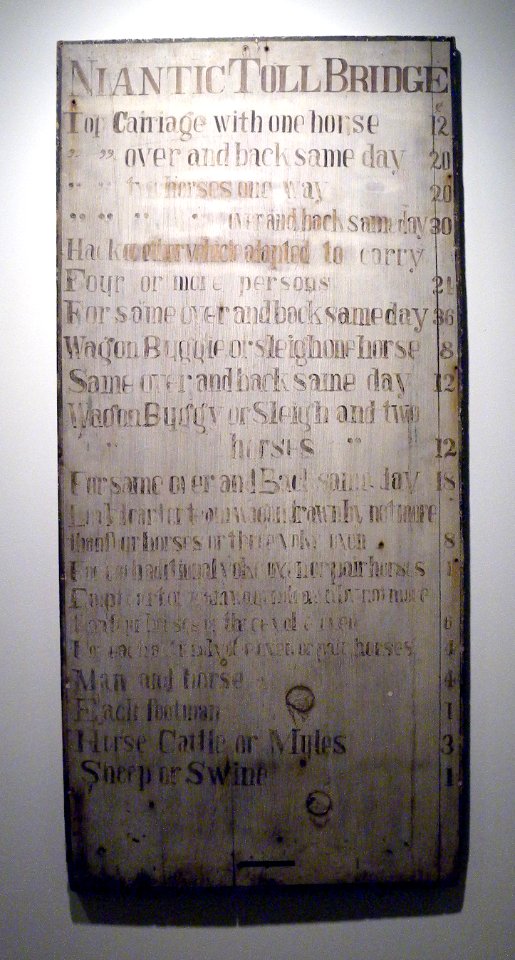 NIANTIC TOLL BRIDGE
Top Carriage with one horse 12
" " over and back same day 20
" " two horses one way 20
" " " " over and back same day 30
Hack or other which adapted to carry
Four or more persons 24
For same over and back same day 36
Wagon Buggie or sleigh one horse 8
Same over and back same day 12
Wagon Buggy or Sleigh and two
" horses " 12
For same over and Back same day 18
team wagon drawn by not more
than four horses or three yoke oxen 8
For each additional yoke oxen or pair horses
not more
6
For each or pair horses 4
Man and horse 4
Each footman 1
Horse Cattle or Mules 3
Sheep or Swine 1